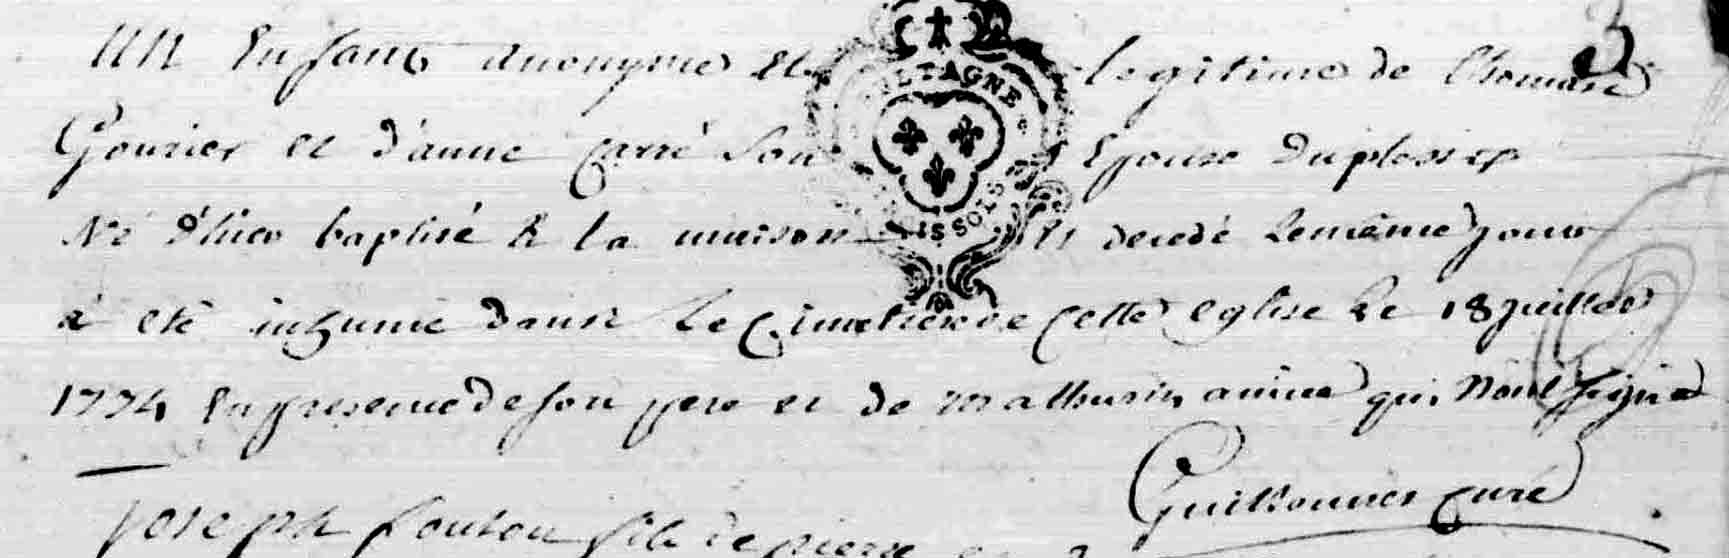 Un Enfant anonyme et legitime de thomas 3
Gourier et d'anne Carré Son Epouse Duplessix
BRETAGNE
Né d'hier baptisé à la maison et decedé le même jour
à eté inhumé dans le Cimetiere de Cette eglise Le 18 juillet
1774 En presence de son pere et de mathurin qui N'ont signé
Guillouner curé
Joseph fils de pierre